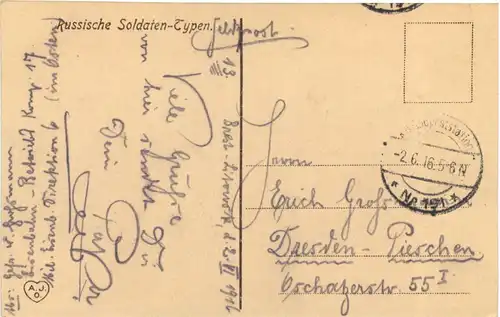 Russische Soldaten-Typen.
Feldpost.
13
Brest-Litowsk, d. 2. VI 1916
Viele Grüße
von hier sendet Dir
Dein
Abs: Gefr. v. Großmann
Eisenbahn-Betriebs Komp. 17.
Mil. Eisenb. Direktion 6 (im Osten)
Herrn
Erich Groß
Dresden-Pieschen
Oschatzerstr 55 I
-2.6.16.5-6N
* No 191 *
A.J.
O.